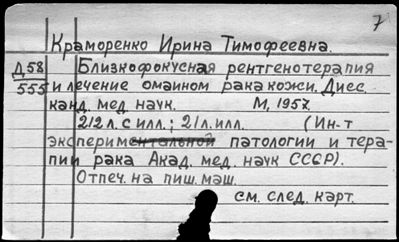 7
Краморенко Ирина Тимофеевна.
Д58 Близкофокусная рентгенотерапия
555 и лечение омаином рака кожи. Дисс.
канд. мед. наук. М, 1957.
212л. с илл.; 21л. илл. (Ин-т
экспериментальной патологии и тера-
пии рака Акад. мед. наук СССР).
Отпеч. на пиш. маш.
см. след. карт.